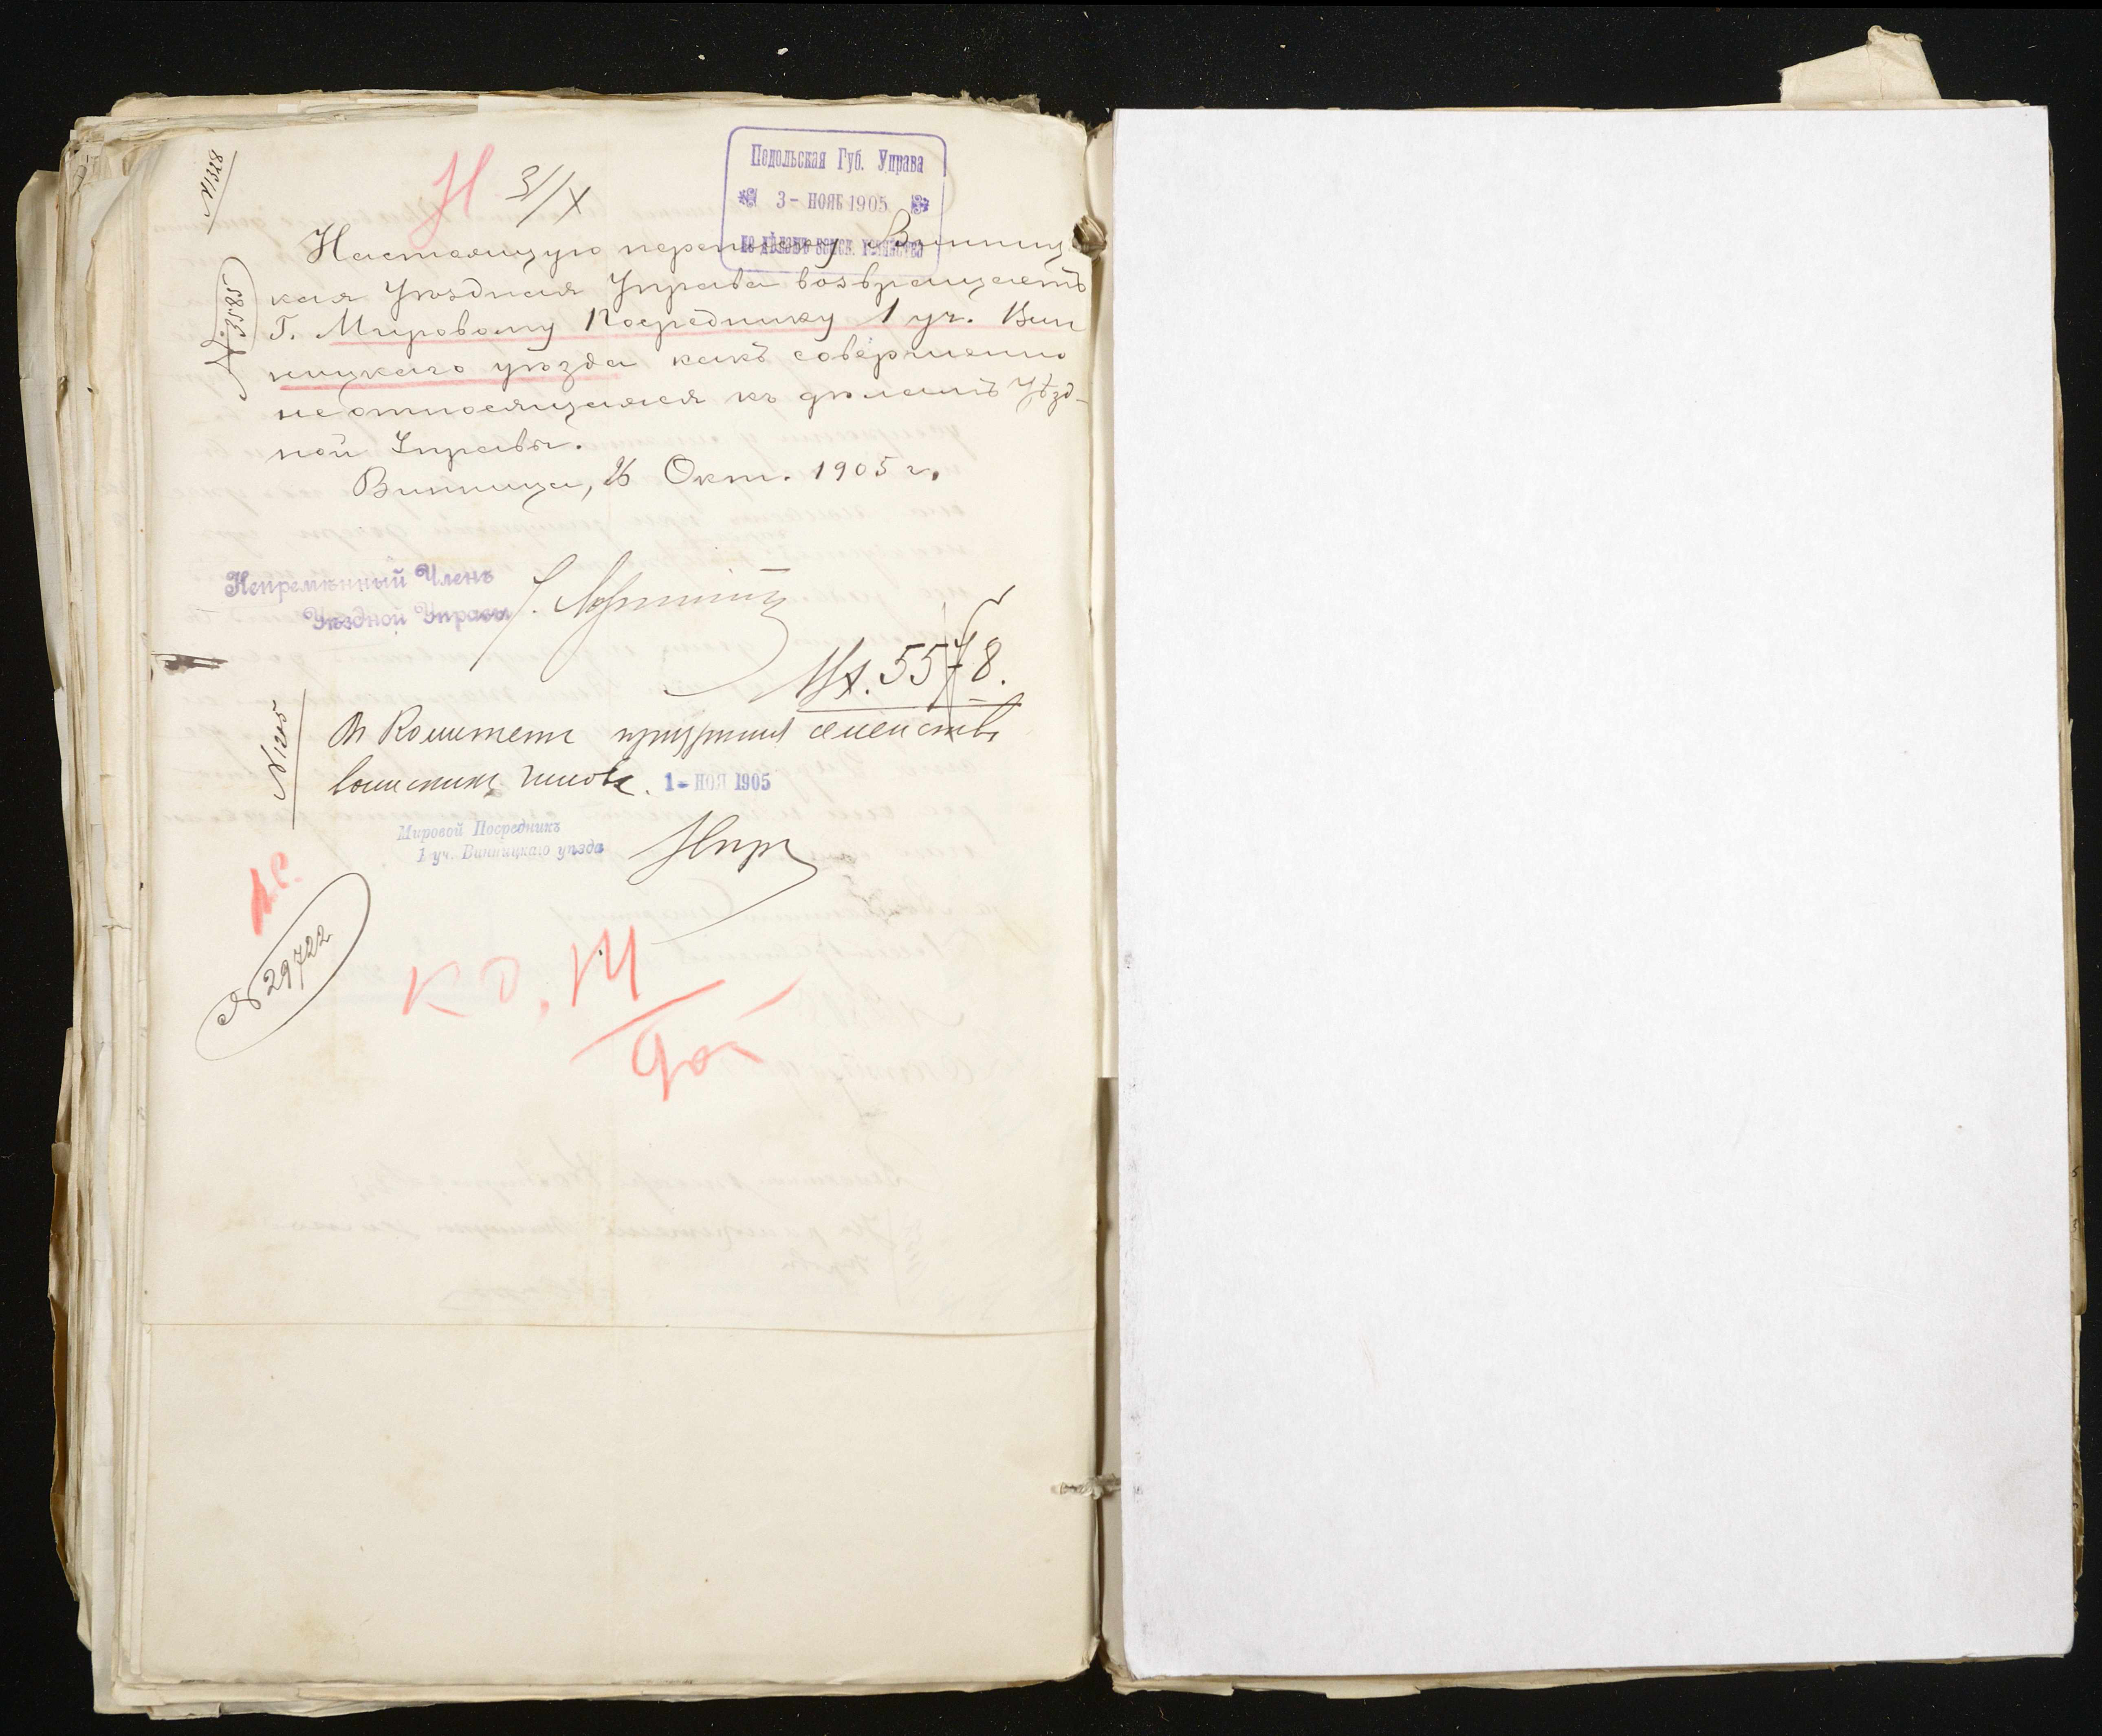 № 1328
Н 3/IX
Подольская Губ. Управа
3 - НОЯБ 1905
по дѣламъ
№ 3585
Настоящую переписку Винниц
кая Уѣздная Управа возвращаетъ
Г. Мировому Посреднику 1 уч. Вин
ницкаго уѣзда какъ совершенно
не относящуюся къ дѣламъ Уѣзд-
ной Управы.
Винница, 26 Окт. 1905 г.
Непремѣнный Членъ
Уѣздной Управы
Вх. 5578.
В Комитетъ призрѣнія семействъ
воинских чиновъ. 1 - НОЯ 1905
Мировой Посредникъ
1 уч. Винницкаго уѣзда
№ 29722